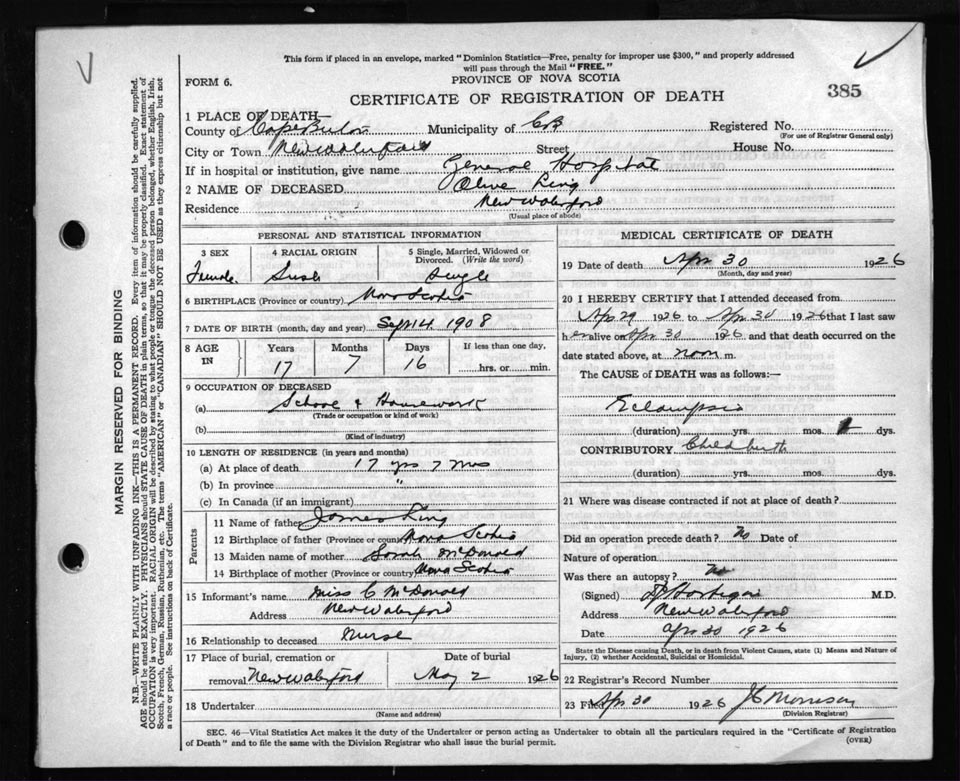 This form if placed in an envelope, marked "Dominion Statistics—Free, penalty for improper use $300," and properly addressed
will pass through the Mail "FREE."
FORM 6.
PROVINCE OF NOVA SCOTIA
CERTIFICATE OF REGISTRATION OF DEATH
385
1 PLACE OF DEATH—
County of Cape Breton Municipality of CB Registered No.
(For use of Registrar General only)
City or Town New Waterford Street House No.
If in hospital or institution, give name General Hospital
2 NAME OF DECEASED Olive
Residence New Waterford
(Usual place of abode)
PERSONAL AND STATISTICAL INFORMATION
3 SEX 4 RACIAL ORIGIN 5 Single, Married, Widowed or
Divorced. (Write the word)
Female Single
6 BIRTHPLACE (Province or country) Nova Scotia
7 DATE OF BIRTH (month, day and year) Sept 14 1908
8 AGE IN Years Months Days If less than one day,
17 7 16 hrs. or min.
9 OCCUPATION OF DECEASED
(a) School & Housework
(Trade or occupation or kind of work)
(b)
(Kind of industry)
10 LENGTH OF RESIDENCE (in years and months)
(a) At place of death 17 yrs 7 mos
(b) In province "
(c) In Canada (if an immigrant)
Parents
11 Name of father James
12 Birthplace of father (Province or country) Nova Scotia
13 Maiden name of mother Sarah McDonald
14 Birthplace of mother (Province or country) Nova Scotia
15 Informant's name Miss C McDonald
Address New Waterford
16 Relationship to deceased Nurse
17 Place of burial, cremation or Date of burial
removal New Waterford May 2 1926
18 Undertaker
(Name and address)
MEDICAL CERTIFICATE OF DEATH
19 Date of death Apr 30 1926
(Month, day and year)
20 I HEREBY CERTIFY that I attended deceased from
Apr 29 1926 to Apr 30 1926 that I last saw
her alive on Apr 30 1926, and that death occurred on the
date stated above, at noon m.
The CAUSE of DEATH was as follows:—
Eclampsia
(duration) yrs. mos. dys.
CONTRIBUTORY Childbirth
(duration) yrs. mos. dys.
21 Where was disease contracted if not at place of death?
Did an operation precede death? No Date of
Nature of operation
Was there an autopsy? No
(Signed) M.D.
Address New Waterford
Date Apr 30 1926
State the Disease causing Death, or in death from Violent Causes, state (1) Means and Nature of
Injury, (2) whether Accidental, Suicidal or Homicidal.
22 Registrar's Record Number
23 Filed Apr 30 1926 J C Morrison
(Division Registrar)
SEC. 46—Vital Statistics Act makes it the duty of the Undertaker or person acting as Undertaker to obtain all the particulars required in the "Certificate of Registration
of Death" and to file the same with the Division Registrar who shall issue the burial permit.
(OVER)
MARGIN RESERVED FOR BINDING
N.B.—WRITE PLAINLY WITH UNFADING INK—THIS IS A PERMANENT RECORD. Every item of information should be carefully supplied.
AGE should be stated EXACTLY. PHYSICIANS should STATE CAUSE OF DEATH in plain terms, so that it may be properly classified. Exact statement of
OCCUPATION is very important. RACIAL ORIGIN will be described by stating to what people or tongue the deceased person belonged, whether English, Irish,
Scotch, French, German, Russian, Ruthenian, etc. The terms "AMERICAN" or "CANADIAN" SHOULD NOT BE USED as they express citizenship but not
a race or people. See instructions on back of Certificate.